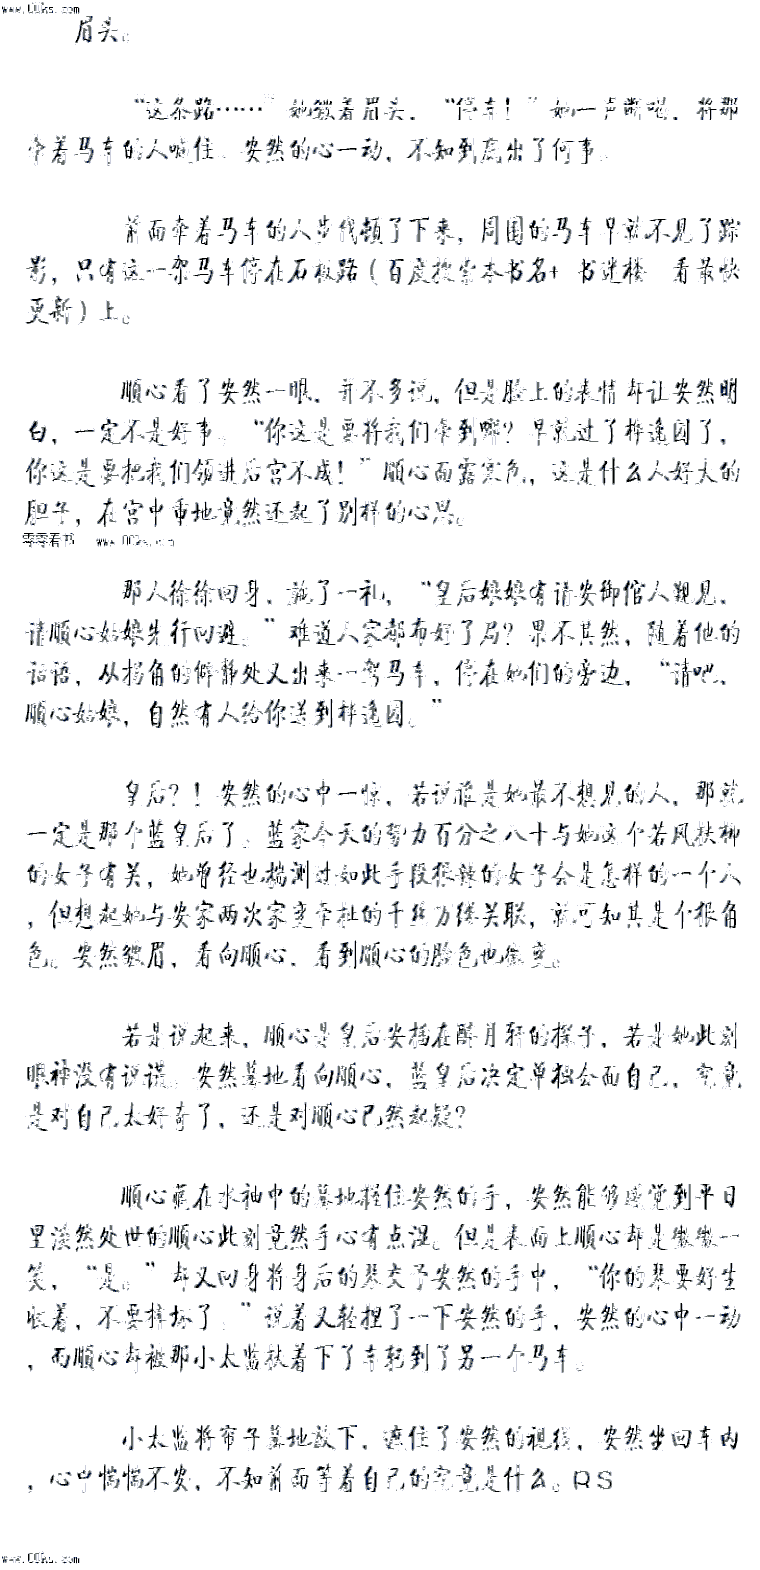 www.00ks.com
眉头。
“这条路……”她皱着眉头，“停车！”她一声断喝，将那
牵着马车的人喊住。安然的心一动，不知到底出了何事。
前面牵着马车的人步伐顿了下来，周围的马车早就不见了踪
影，只有这一架马车停在石板路（百度搜索本书名+ 书迷楼 看最快
更新）上。
顺心看了安然一眼，并不多说，但是脸上的表情却让安然明
白，一定不是好事。“你这是要将我们牵到哪？早就过了梓逸园了，
你这是要把我们领进后宫不成！”顺心面露寒色，这是什么人好大的
胆子，在宫中重地竟然还起了别样的心思。
零零看书 www.00ks.com
那人徐徐回身，施了一礼，“皇后娘娘有请安御倌人觐见，
请顺心姑娘先行回避。”难道人家都布好了局？果不其然，随着他的
话语，从拐角的僻静处又出来一驾马车，停在她们的旁边，“请吧，
顺心姑娘，自然有人给你送到梓逸园。”
皇后？！安然的心中一惊，若说谁是她最不想见的人，那就
一定是那个蓝皇后了。蓝家今天的势力百分之八十与她这个若风扶柳
的女子有关，她曾经也揣测过如此手段狠辣的女子会是怎样的一个人
，但想起她与安家两次家变牵扯的千丝万缕关联，就可知其是个狠角
色。安然皱眉，看向顺心，看到顺心的脸色也微变。
若是说起来，顺心是皇后安插在醉月轩的探子，若是她此刻
眼神没有说谎。安然蓦地看向顺心，蓝皇后决定单独会面自己，究竟
是对自己太好奇了，还是对顺心已然起疑？
顺心藏在水袖中的蓦地握住安然的手，安然能够感觉到平日
里淡然处世的顺心此刻竟然手心有点湿。但是表面上顺心却是微微一
笑，“是。”却又回身将身后的琴交予安然的手中，“你的琴要好生
收着，不要摔坏了。”说着又轻捏了一下安然的手，安然的心中一动
，而顺心却被那小太监扶着下了车轿到了另一个马车。
小太监将帘子蓦地放下，遮住了安然的视线，安然坐回车内
，心中惴惴不安，不知前面等着自己的究竟是什么。RS
www.00ks.com